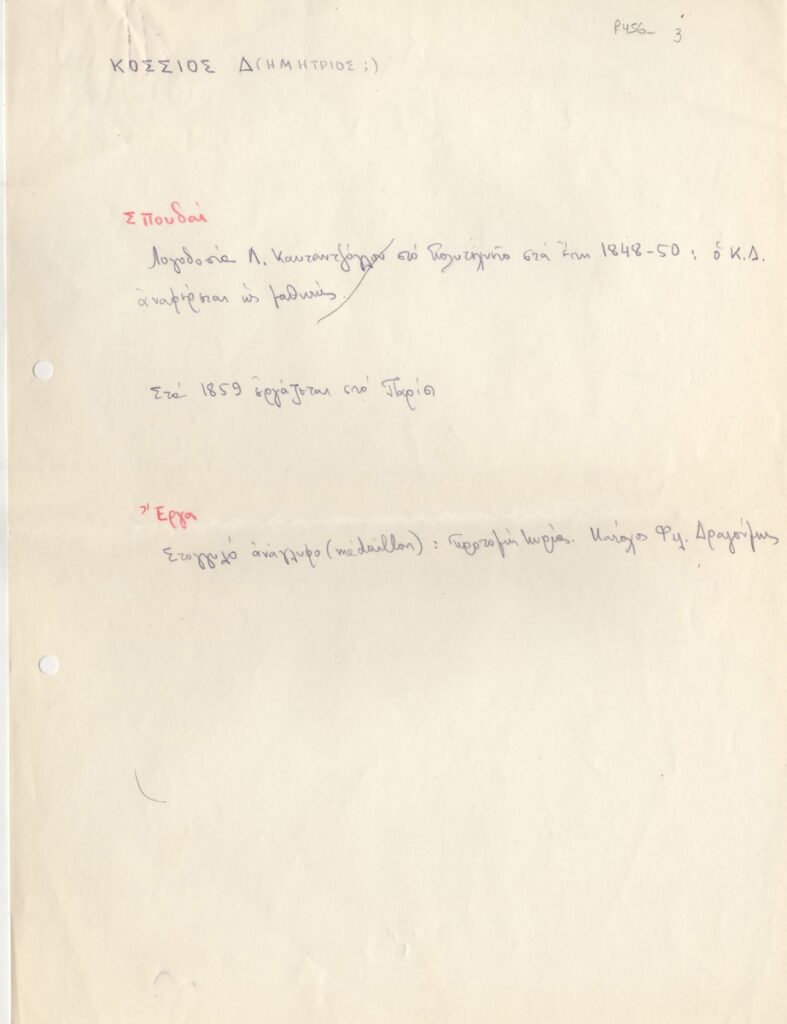 P456- 3
ΚΟΣΣΙΟΣ Δ(ΗΜΗΤΡΙΟΣ;)
Σπουδαί
Λογοδοσία Λ. Καυταντζόγλου στό Πολυτεχνεῖο στά ἔτη 1848-50 : ὁ Κ.Δ.
ἀναφέρεται ὡς μαθητής.
Στά 1859 ἐργάζεται στό Παρίσι
Ἔργα
Στογγυλό ἀνάγλυφο (médaillon) : προτομή κυρίας. Κάτοχος Φιλ. Δραγούμης